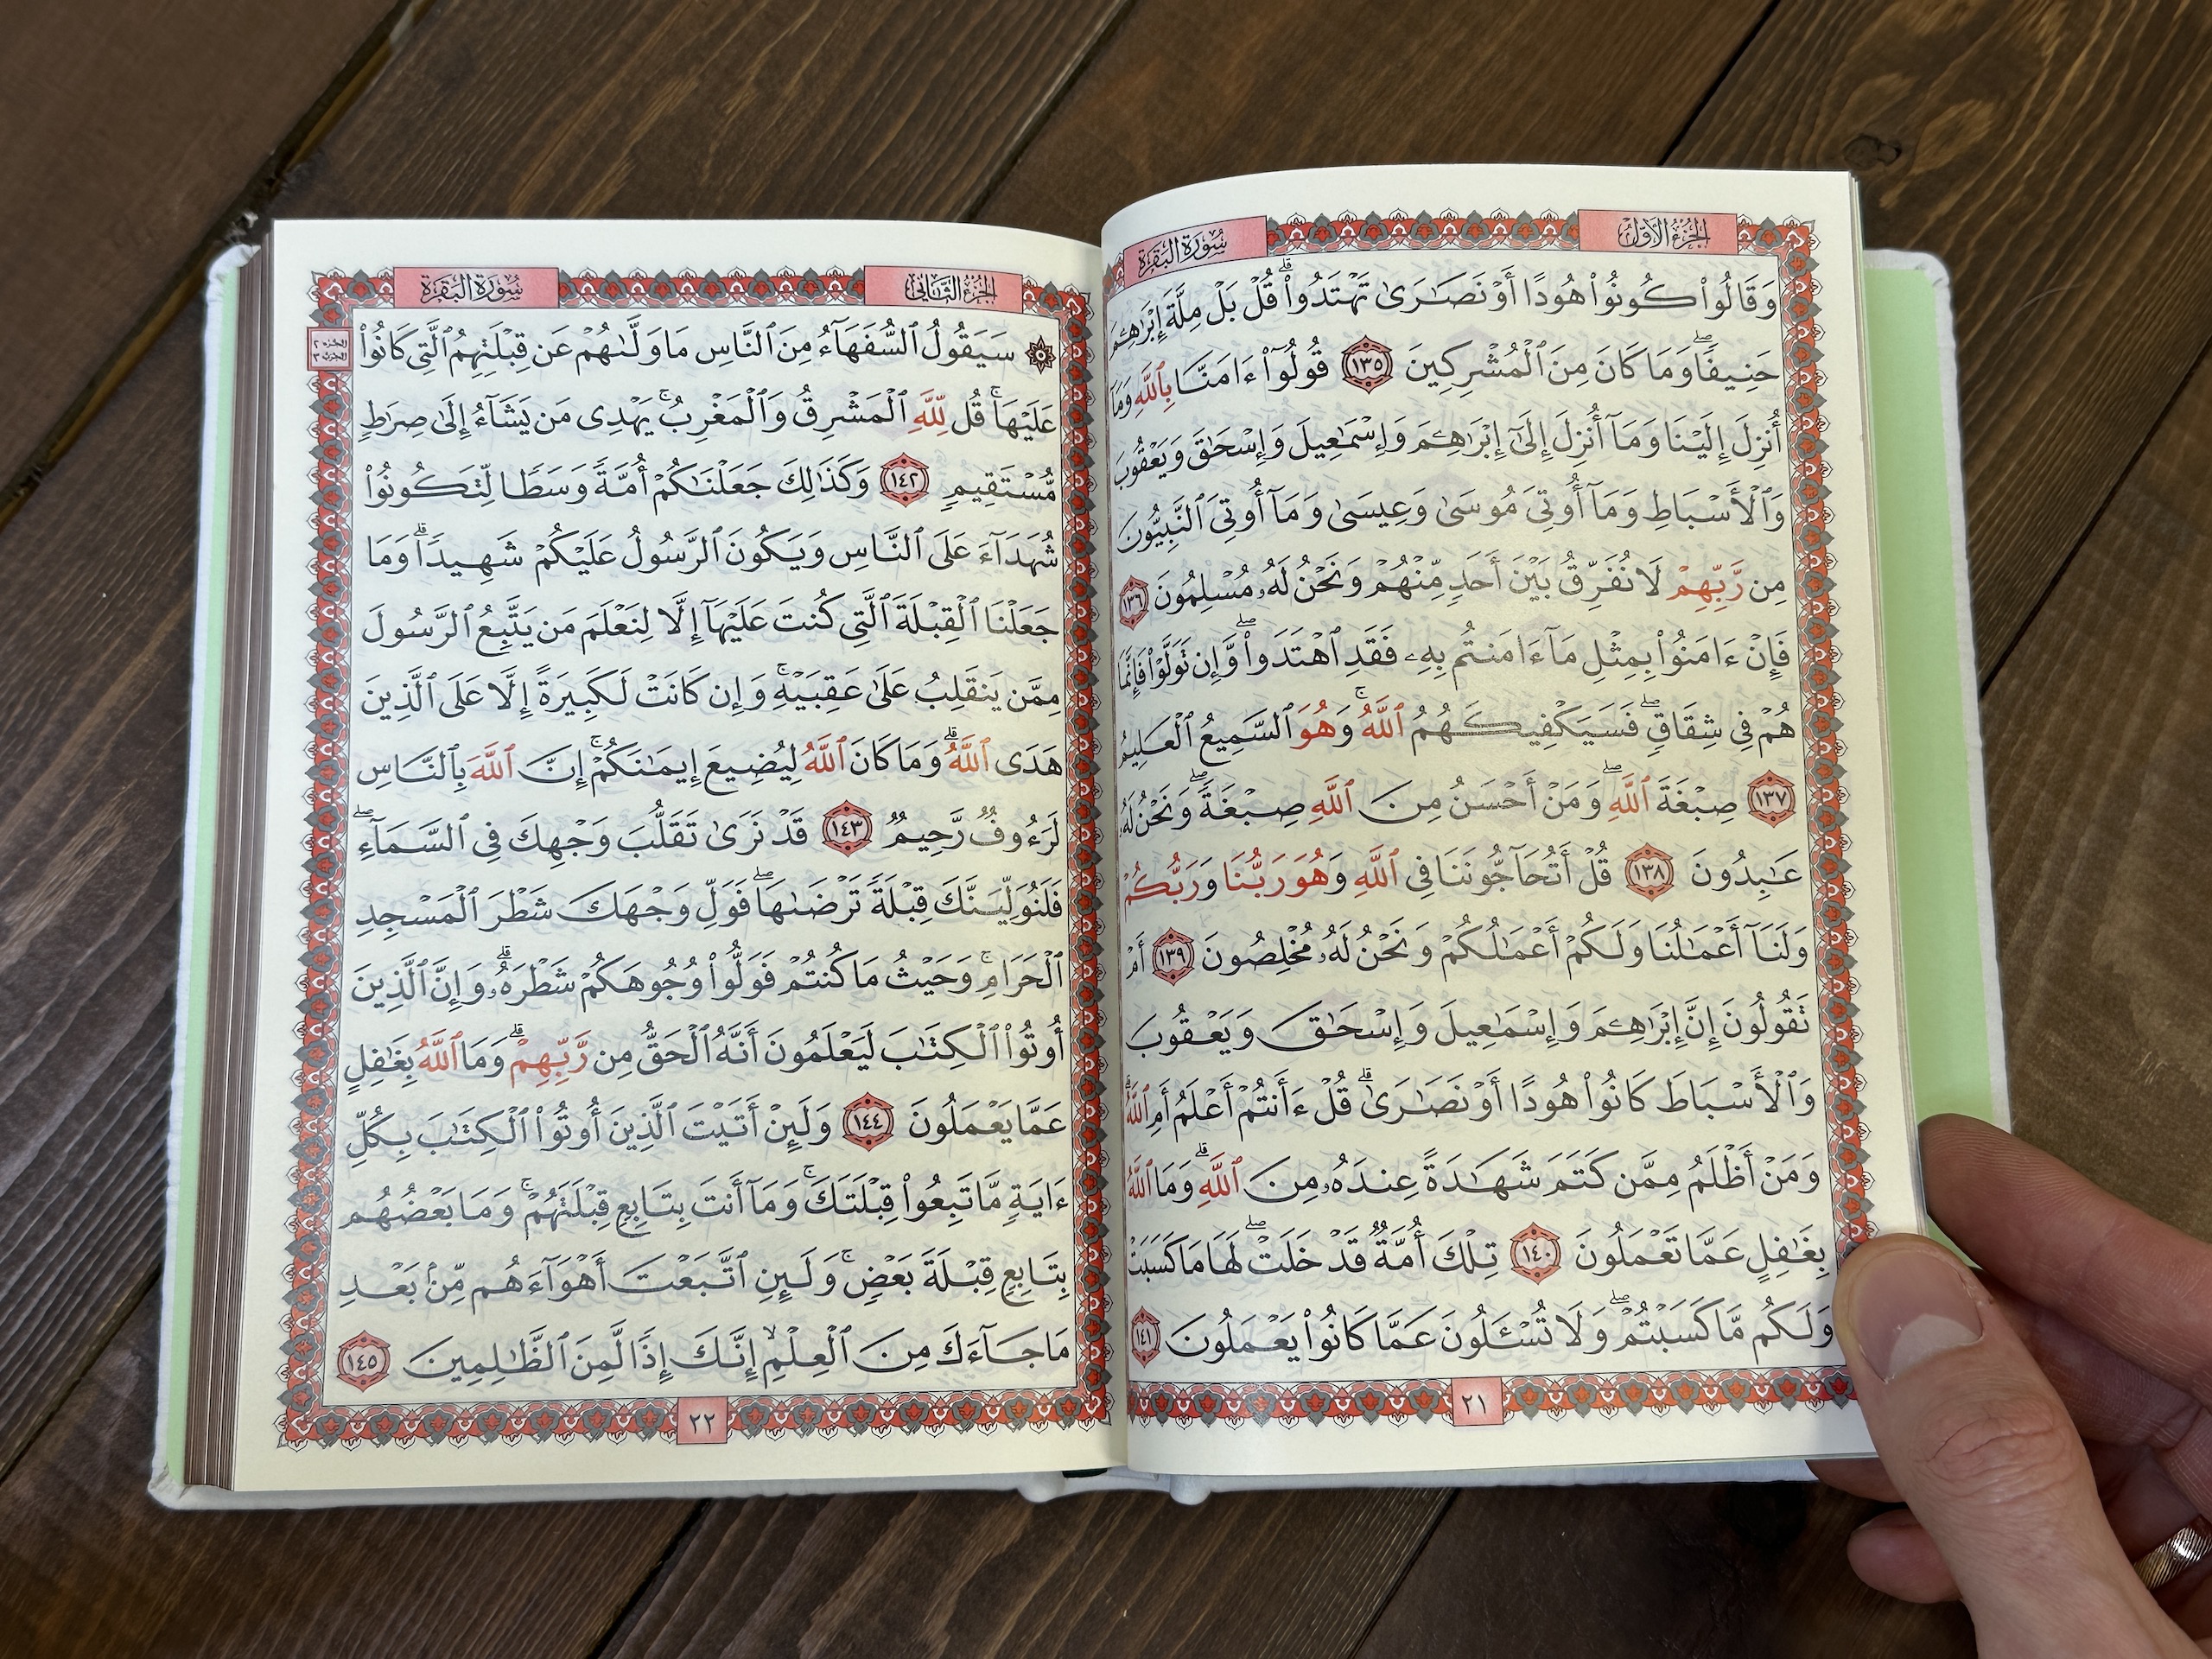 الجزء الأول
سورة البقرة
وَقَالُوا۟ كُونُوا۟ هُودًا أَوْ نَصَـٰرَىٰ تَهْتَدُوا۟ ۗ قُلْ بَلْ مِلَّةَ إِبْرَٰهِـۧمَ
حَنِيفًا ۖ وَمَا كَانَ مِنَ ٱلْمُشْرِكِينَ ١٣٥ قُولُوٓا۟ ءَامَنَّا بِٱللَّهِ وَمَآ
أُنزِلَ إِلَيْنَا وَمَآ أُنزِلَ إِلَىٰٓ إِبْرَٰهِـۧمَ وَإِسْمَـٰعِيلَ وَإِسْحَـٰقَ وَيَعْقُوبَ
وَٱلْأَسْبَاطِ وَمَآ أُوتِىَ مُوسَىٰ وَعِيسَىٰ وَمَآ أُوتِىَ ٱلنَّبِيُّونَ
مِن رَّبِّهِمْ لَا نُفَرِّقُ بَيْنَ أَحَدٍ مِّنْهُمْ وَنَحْنُ لَهُۥ مُسْلِمُونَ ١٣٦
فَإِنْ ءَامَنُوا۟ بِمِثْلِ مَآ ءَامَنتُم بِهِۦ فَقَدِ ٱهْتَدَوا۟ ۖ وَّإِن تَوَلَّوْا۟ فَإِنَّمَا
هُمْ فِى شِقَاقٍ ۖ فَسَيَكْفِيكَهُمُ ٱللَّهُ ۚ وَهُوَ ٱلسَّمِيعُ ٱلْعَلِيمُ
١٣٧ صِبْغَةَ ٱللَّهِ ۖ وَمَنْ أَحْسَنُ مِنَ ٱللَّهِ صِبْغَةً ۖ وَنَحْنُ لَهُۥ
عَـٰبِدُونَ ١٣٨ قُلْ أَتُحَآجُّونَنَا فِى ٱللَّهِ وَهُوَ رَبُّنَا وَرَبُّكُمْ
وَلَنَآ أَعْمَـٰلُنَا وَلَكُمْ أَعْمَـٰلُكُمْ وَنَحْنُ لَهُۥ مُخْلِصُونَ ١٣٩ أَمْ
تَقُولُونَ إِنَّ إِبْرَٰهِـۧمَ وَإِسْمَـٰعِيلَ وَإِسْحَـٰقَ وَيَعْقُوبَ
وَٱلْأَسْبَاطَ كَانُوا۟ هُودًا أَوْ نَصَـٰرَىٰ ۗ قُلْ ءَأَنتُمْ أَعْلَمُ أَمِ ٱللَّهُ ۗ
وَمَنْ أَظْلَمُ مِمَّن كَتَمَ شَهَـٰدَةً عِندَهُۥ مِنَ ٱللَّهِ ۗ وَمَا ٱللَّهُ
بِغَـٰفِلٍ عَمَّا تَعْمَلُونَ ١٤٠ تِلْكَ أُمَّةٌ قَدْ خَلَتْ ۖ لَهَا مَا كَسَبَتْ
وَلَكُم مَّا كَسَبْتُمْ ۖ وَلَا تُسْـَٔلُونَ عَمَّا كَانُوا۟ يَعْمَلُونَ ١٤١
٢١
الجزء الثاني
سورة البقرة
سَيَقُولُ ٱلسُّفَهَآءُ مِنَ ٱلنَّاسِ مَا وَلَّىٰهُمْ عَن قِبْلَتِهِمُ ٱلَّتِى كَانُوا۟
عَلَيْهَا ۚ قُل لِّلَّهِ ٱلْمَشْرِقُ وَٱلْمَغْرِبُ ۚ يَهْدِى مَن يَشَآءُ إِلَىٰ صِرَٰطٍ
مُّسْتَقِيمٍ ١٤٢ وَكَذَٰلِكَ جَعَلْنَـٰكُمْ أُمَّةً وَسَطًا لِّتَكُونُوا۟
شُهَدَآءَ عَلَى ٱلنَّاسِ وَيَكُونَ ٱلرَّسُولُ عَلَيْكُمْ شَهِيدًا ۗ وَمَا
جَعَلْنَا ٱلْقِبْلَةَ ٱلَّتِى كُنتَ عَلَيْهَآ إِلَّا لِنَعْلَمَ مَن يَتَّبِعُ ٱلرَّسُولَ
مِمَّن يَنقَلِبُ عَلَىٰ عَقِبَيْهِ ۚ وَإِن كَانَتْ لَكَبِيرَةً إِلَّا عَلَى ٱلَّذِينَ
هَدَى ٱللَّهُ ۗ وَمَا كَانَ ٱللَّهُ لِيُضِيعَ إِيمَـٰنَكُمْ ۚ إِنَّ ٱللَّهَ بِٱلنَّاسِ
لَرَءُوفٌ رَّحِيمٌ ١٤٣ قَدْ نَرَىٰ تَقَلُّبَ وَجْهِكَ فِى ٱلسَّمَآءِ ۖ
فَلَنُوَلِّيَنَّكَ قِبْلَةً تَرْضَىٰهَا ۚ فَوَلِّ وَجْهَكَ شَطْرَ ٱلْمَسْجِدِ
ٱلْحَرَامِ ۚ وَحَيْثُ مَا كُنتُمْ فَوَلُّوا۟ وُجُوهَكُمْ شَطْرَهُۥ ۗ وَإِنَّ ٱلَّذِينَ
أُوتُوا۟ ٱلْكِتَـٰبَ لَيَعْلَمُونَ أَنَّهُ ٱلْحَقُّ مِن رَّبِّهِمْ ۗ وَمَا ٱللَّهُ بِغَـٰفِلٍ
عَمَّا يَعْمَلُونَ ١٤٤ وَلَئِنْ أَتَيْتَ ٱلَّذِينَ أُوتُوا۟ ٱلْكِتَـٰبَ بِكُلِّ
ءَايَةٍ مَّا تَبِعُوا۟ قِبْلَتَكَ ۚ وَمَآ أَنتَ بِتَابِعٍ قِبْلَتَهُمْ ۚ وَمَا بَعْضُهُم
بِتَابِعٍ قِبْلَةَ بَعْضٍ ۚ وَلَئِنِ ٱتَّبَعْتَ أَهْوَآءَهُم مِّنۢ بَعْدِ
مَا جَآءَكَ مِنَ ٱلْعِلْمِ ۙ إِنَّكَ إِذًا لَّمِنَ ٱلظَّـٰلِمِينَ ١٤٥
٢٢